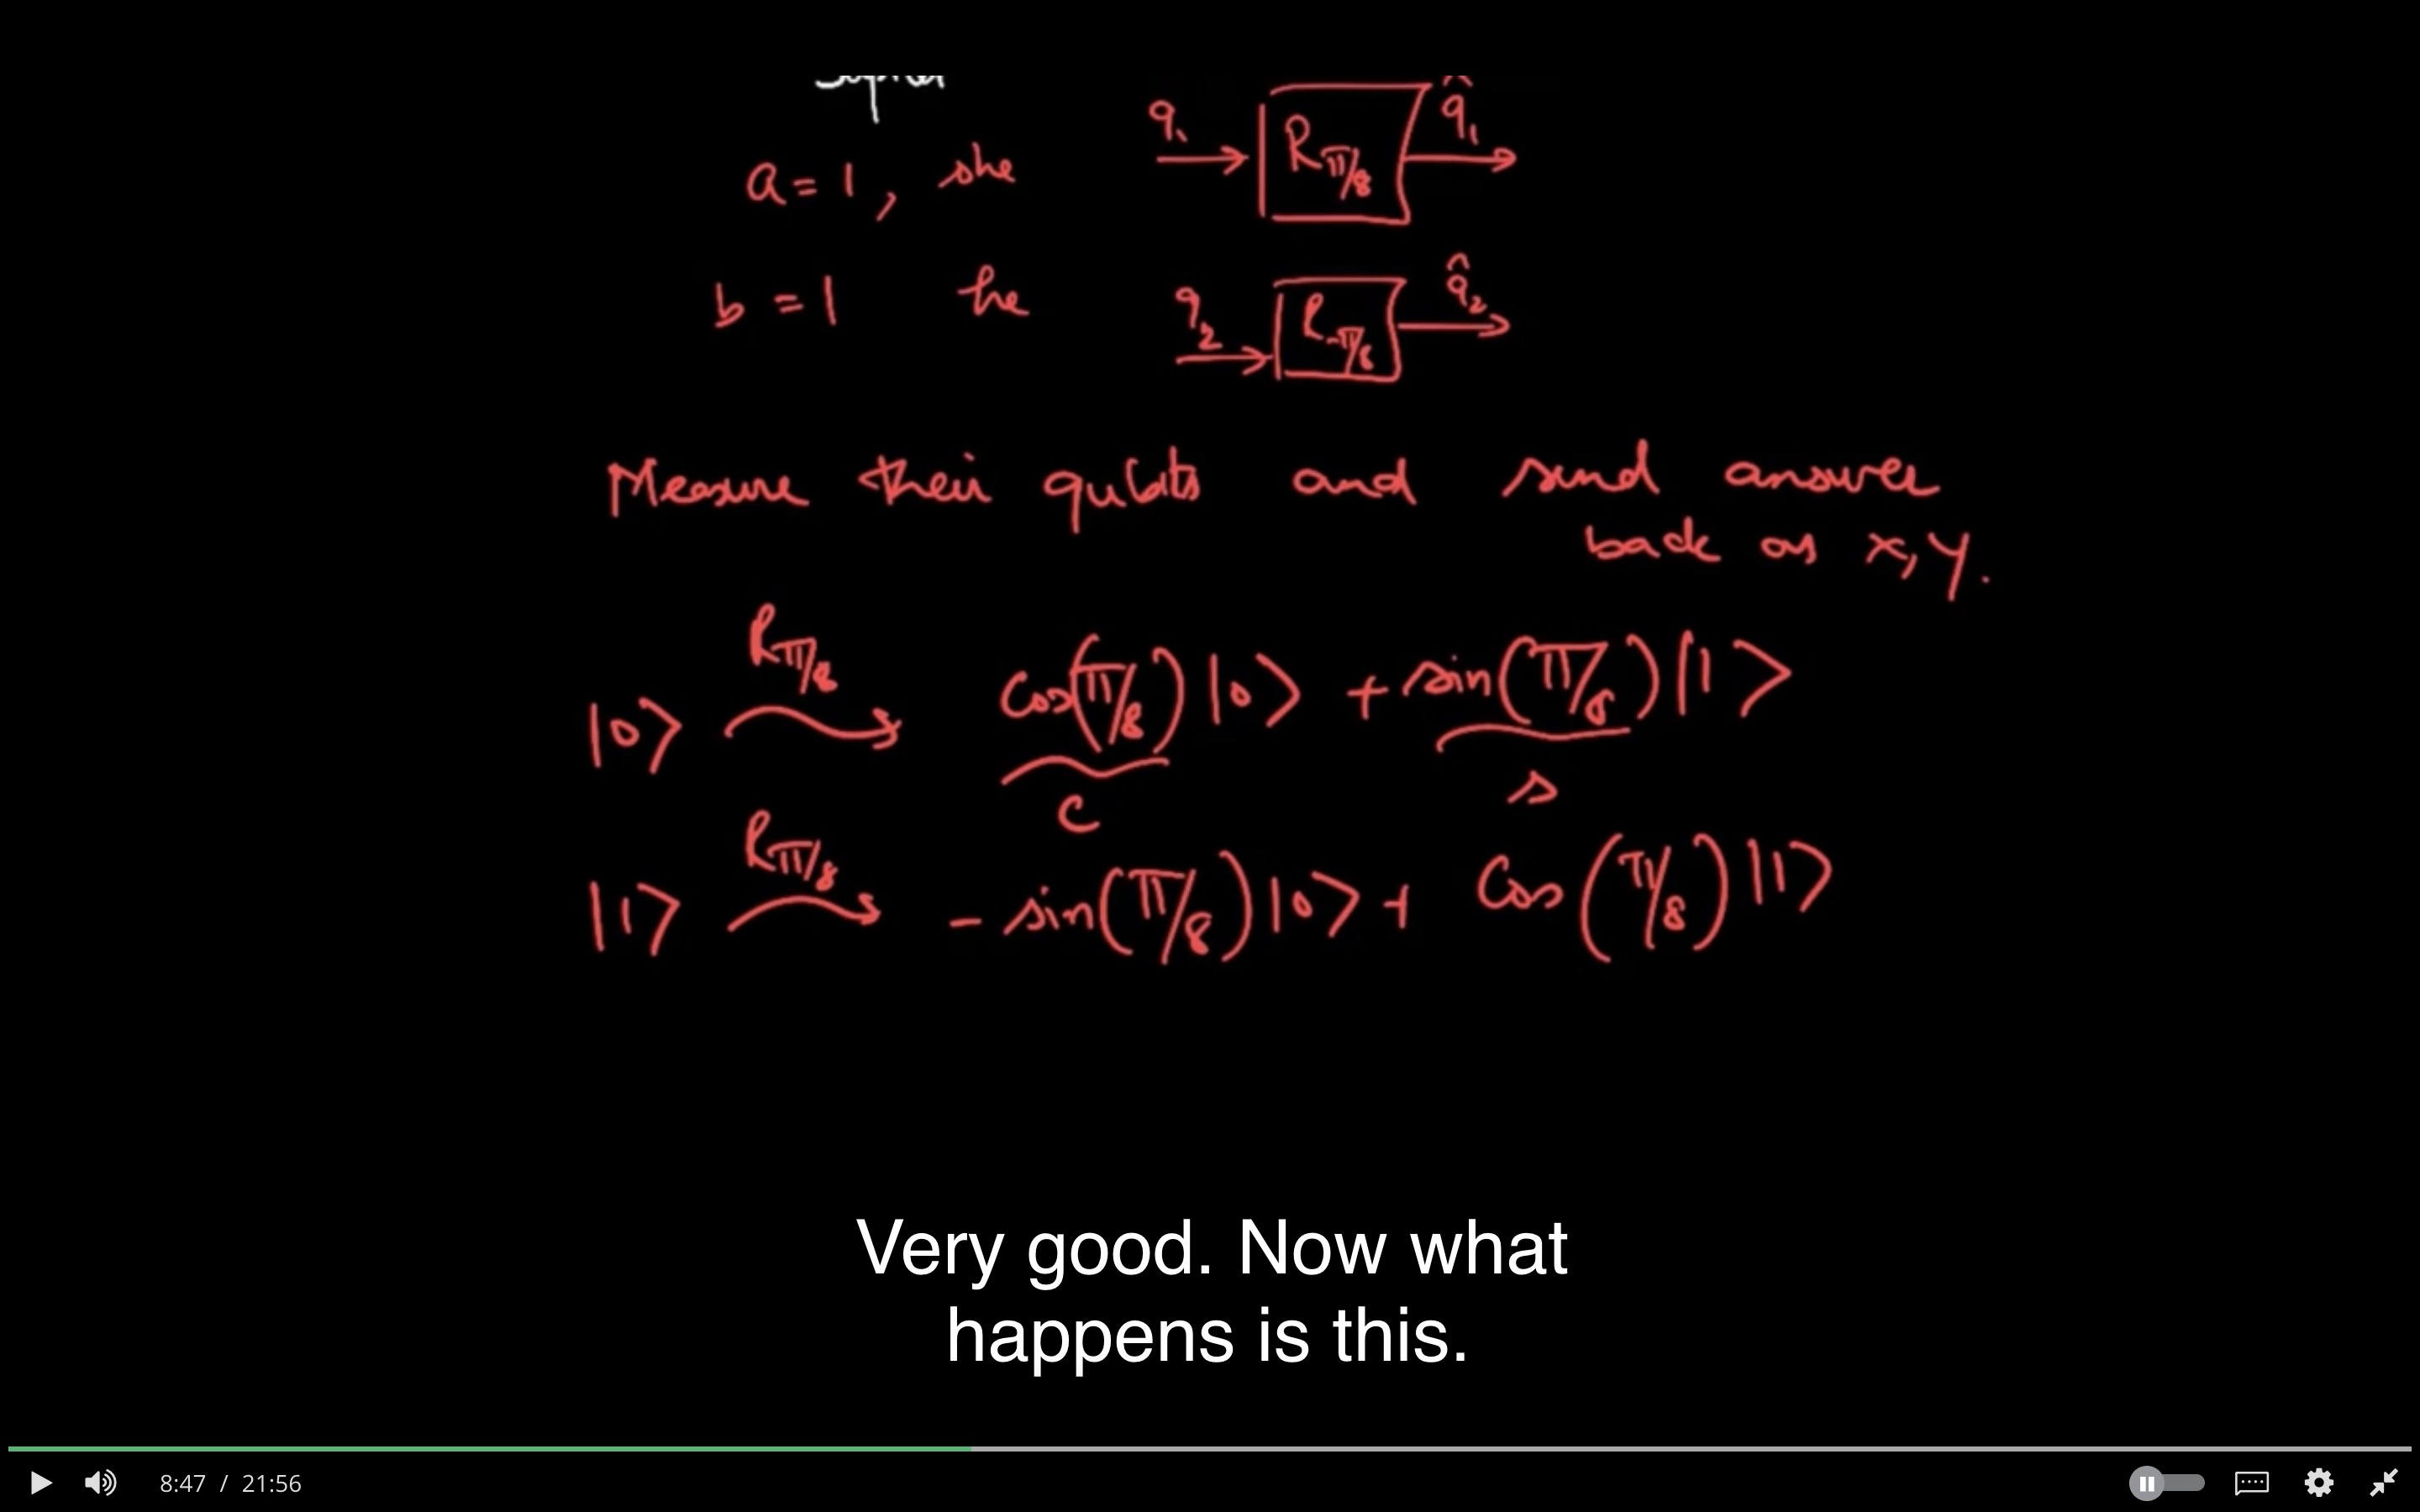 a = 1, she q₁ R_π/8 q̂₁
b = 1 he q₂ R_-π/8 q̂₂
Measure their qubits and send answer
back as x, y.
|0> R_π/8 cos(π/8)|0> + sin(π/8)|1>
c s
|1> R_π/8 - sin(π/8)|0> + Cos(π/8)|1>
Very good. Now what
happens is this.
8:47 / 21:56